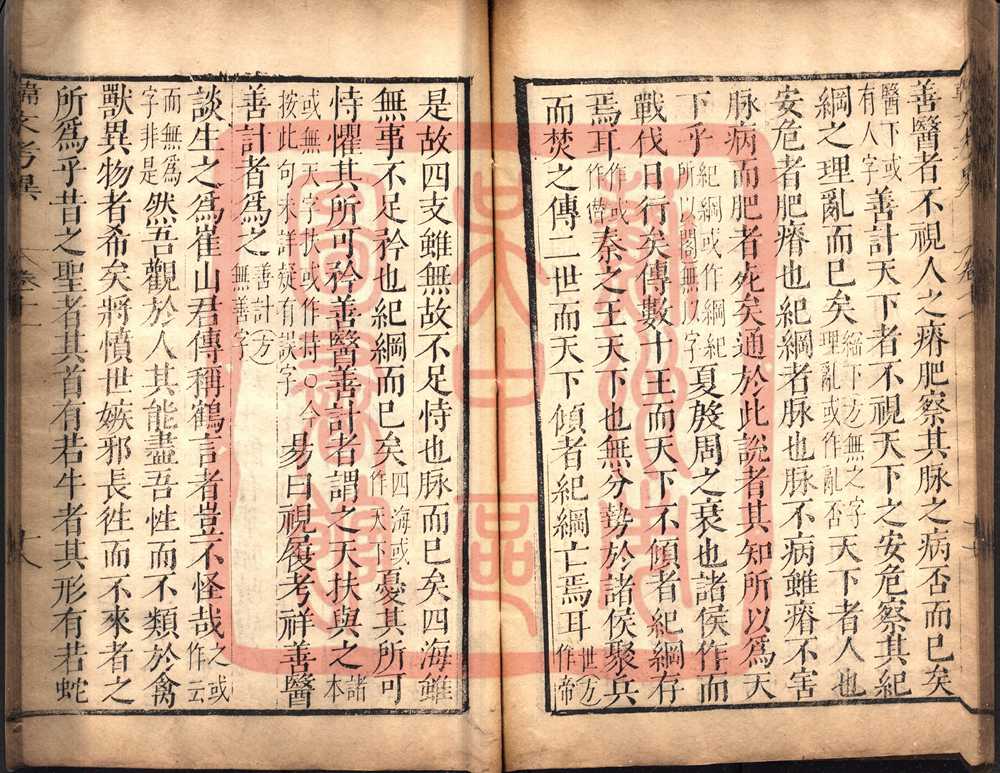 善醫者不視人之瘠肥察其脉之病否而已矣
醫下或有人字善計天下者不視天下之安危察其紀
綱之理亂而已矣綱下方無之字理亂或作亂否天下者人也
安危者肥瘠也紀綱者脉也脉不病雖瘠不害
脉病而肥者死矣通於此說者其知所以爲天
下乎紀綱或作綱紀所以閣無以字夏殷周之衰也諸侯作而
戰伐日行矣傳數十王而天下不傾者紀綱存
焉耳作或作替秦之王天下也無分勢於諸侯聚兵
而焚之傳二世而天下傾者紀綱亡焉耳世方作帝
是故四支雖無故不足恃也脉而已矣四海雖
無事不足矜也紀綱而已矣四海或作天下憂其所可
恃懼其所可矜善醫善計者謂之天扶與之諸本
或無天字扶或作持○今按此句未詳疑有誤字易曰視履考祥善醫
善計者爲之善計方無善字
談生之爲崔山君傳稱鶴言者豈不怪哉之或作云
而無爲字非是然吾觀於人其能盡吾性而不類於禽
獸異物者希矣將憤世嫉邪長往而不來者之
所爲乎昔之聖者其首有若牛者其形有若蛇
韓文考異 卷十一 十八